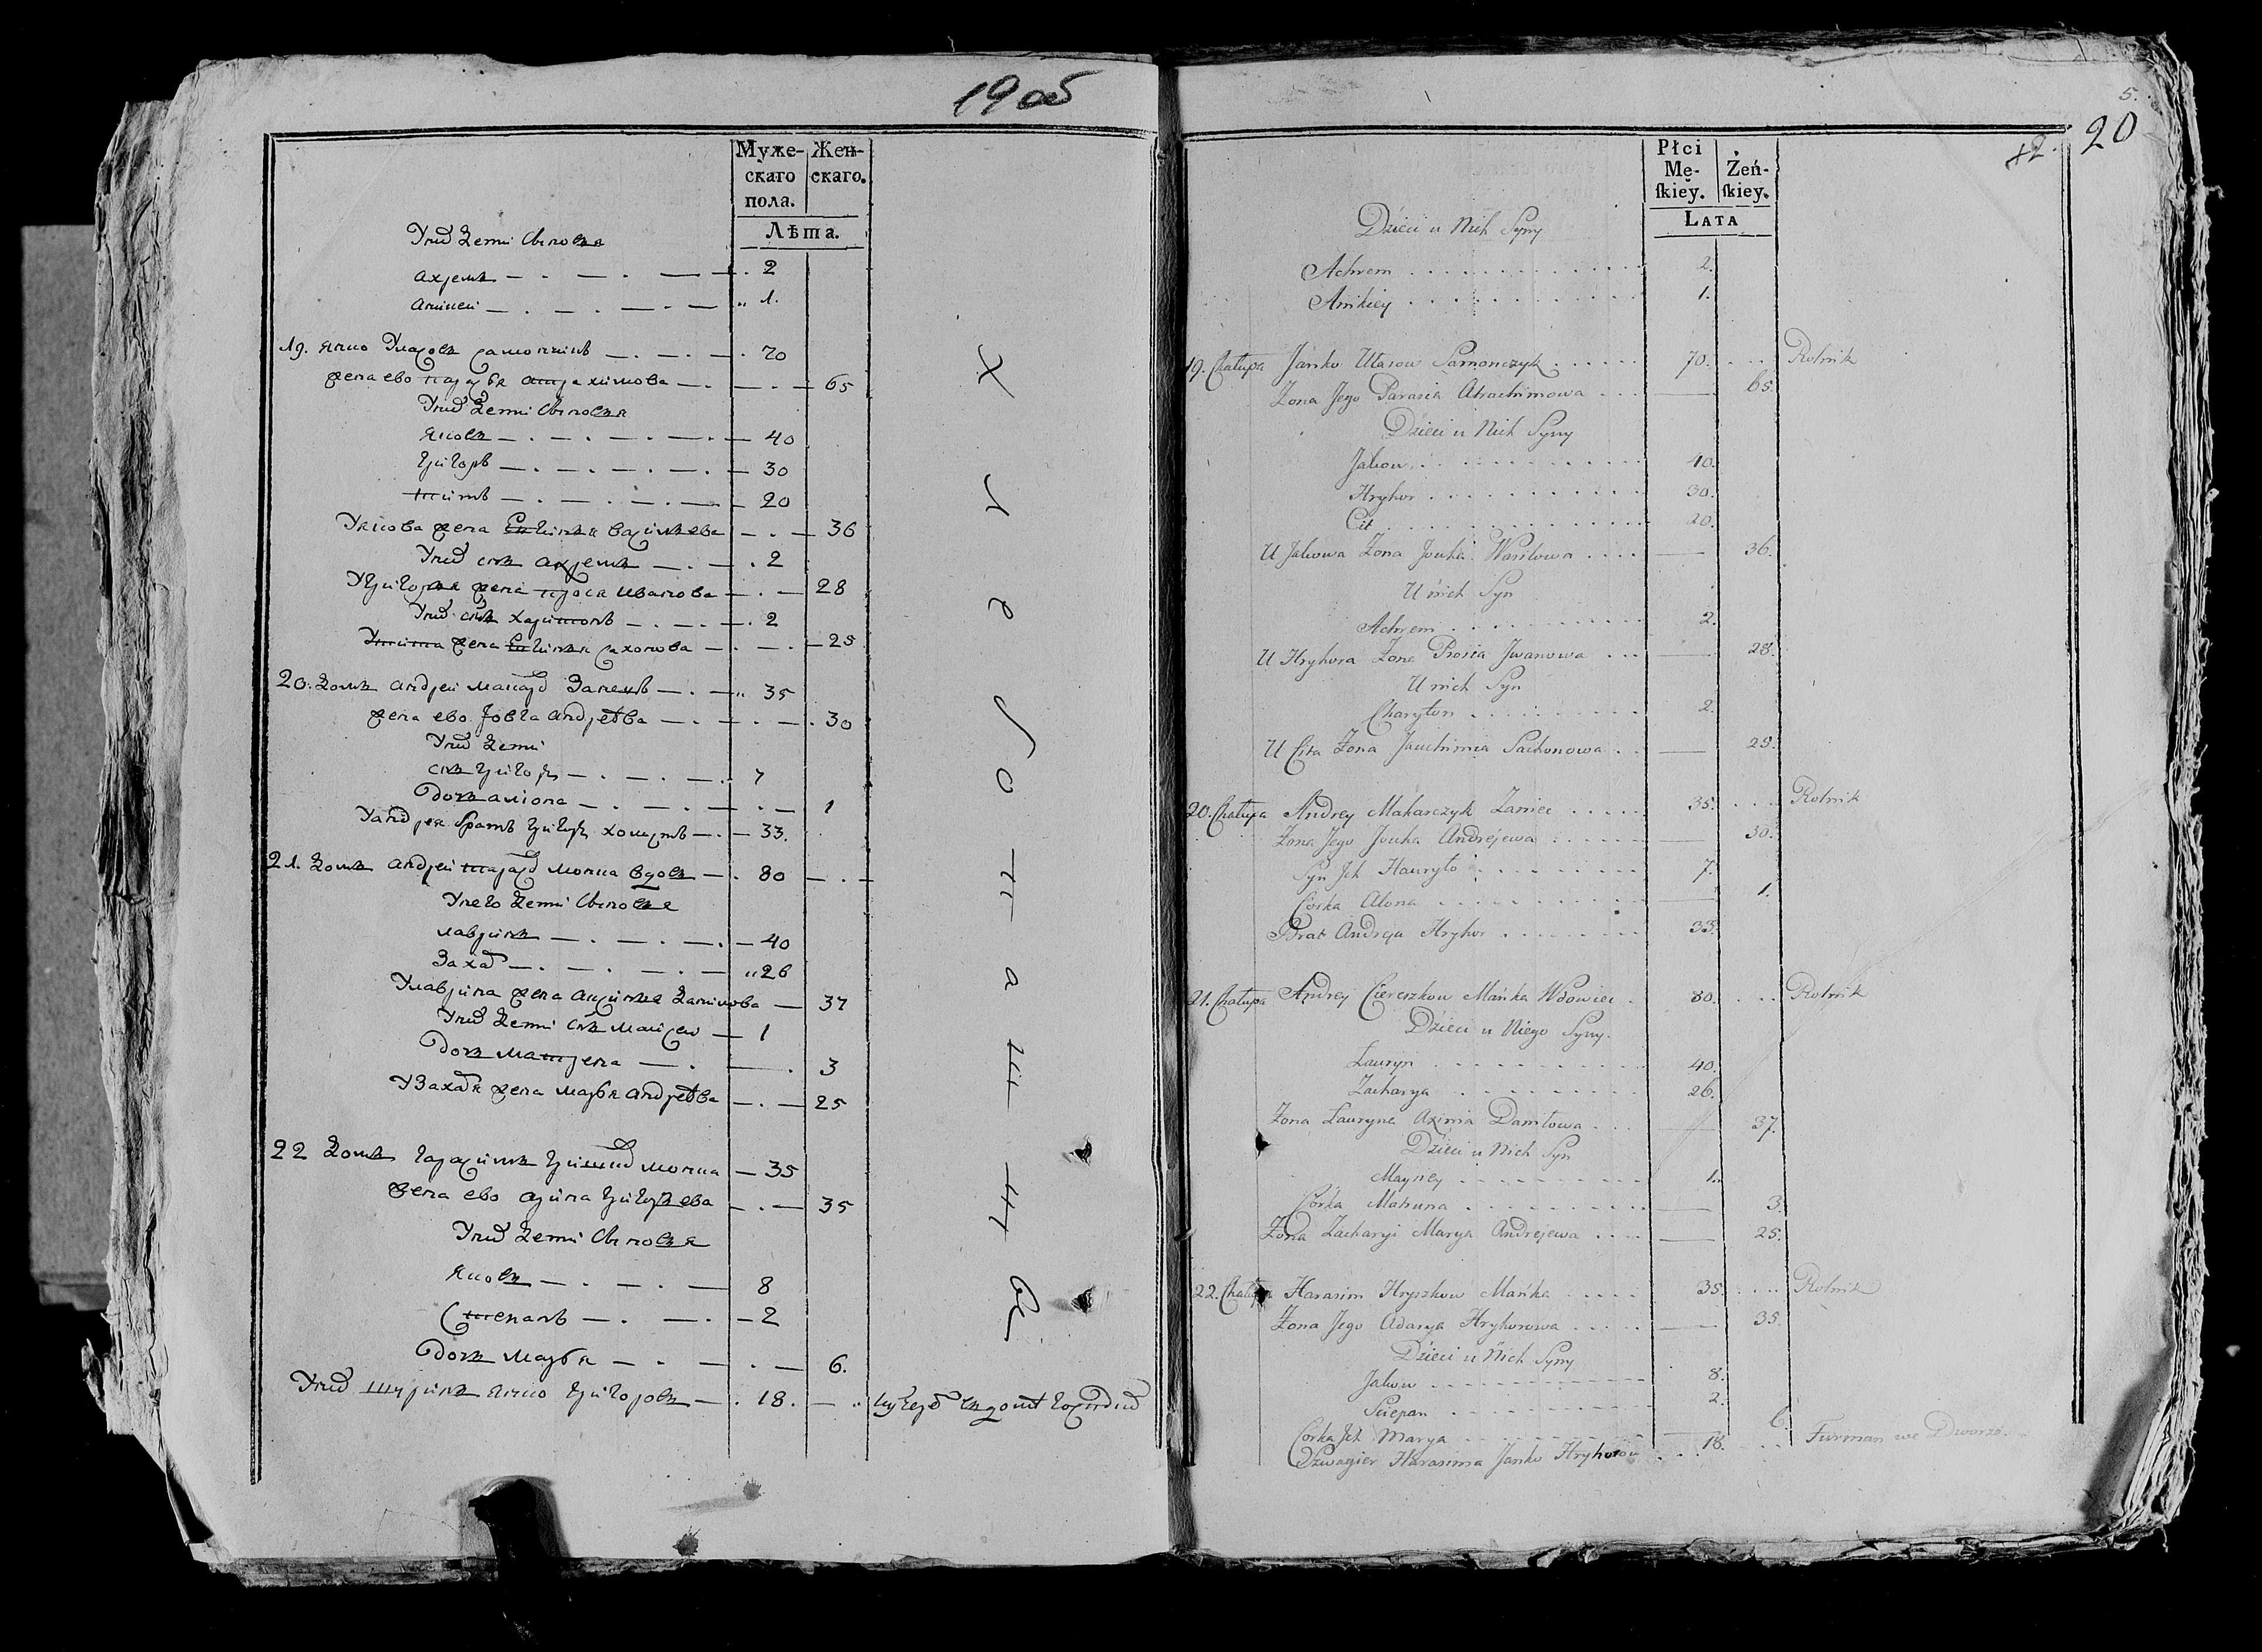 19 об
Муже-
скаго
пола.
Жен-
скаго.
Лѣта.
У них дети Сыновя
ахремъ 2
аникеи 1.
19. янко Уласовъ самончикъ 70
жена ево парася 65
У них дети Сыновя
яковъ 40
григоръ 30
титъ 20
Уякова жена василева 36
У них снъ ахремъ 2
Угригоря жена прося иванова 28
У них снъ харитонъ 2
Утита жена сахонова 25
20. домъ андреи макар Занецъ 35
жена ево Jовга андреева 30
У них дети
снъ григоръ 7
дочь алиона 1
Уандрея братъ григоръ 33.
21. домъ андреи монка вдовъ 80
Унего дети Сыновя
лавринъ 40
Заха 26
Улаврина жена аксиня данилова 37
У них дети снъ маисеи 1
дочь матрена 3
УЗахаря жена маря андреева 25
22 домъ гарасимъ монка 35
жена ево григорева 35
У них дети Сыновя
яковъ 8
Степанъ 2
дочь маря 6.
У них шуринъ янко григоровъ 18.
Хлебопашцы
5.
20
12.
Płci
Mę-
ſkiey.
Żeń-
ſkiey.
LATA
Dzieci u Nich Syny
Achrem 2.
Anikiey 1.
19. Chałupa Janko Ułasow Samonczyk 70. Rolnik
Zona Jego Parasia Atrachimowa 65
Dzieci u Nich Syny
Jakow 40.
Hryhor 30.
Cit 20.
U Jakowa Zona Jouha Wasilowa 36.
U nich Syn
Achrem 2.
U Hryhora Zona Prosia Jwanowa 28.
U nich Syn
Charyton 2.
U Cita Zona Jauchimia Sachonowa 25.
20. Chałupa Andrey Makarczyk Zaniec 35. Rolnik
Zona Jego Jouha Andrejewa 30.
Syn Jch Hauryło 7.
Córka Alona 1.
Brat Andreja Hryhor 33.
21. Chałupa Andrey Ciereszkow Mańka Wdowiec 80. Rolnik
Dzieci u Niego Syny.
Lauryn 40.
Zacharya 26.
Zona Lauryna Axinia Daniłowa 37.
Dzieci u Nich Syn
Maysiey 1.
Córka Matruna 3.
Zona Zacharyi Marya Andrejewa 25.
22. Chałupa Harasim Hryszkow Mańka 35. Rolnik
Zona Jego Adarya Hryhorowa 35.
Dzieci u Nich Syny
Jakow 8.
Sciepan 2.
Córka Jch Marya 6.
Szwagier Harasima Janko Hryhorow 18. Furman we Dworze.